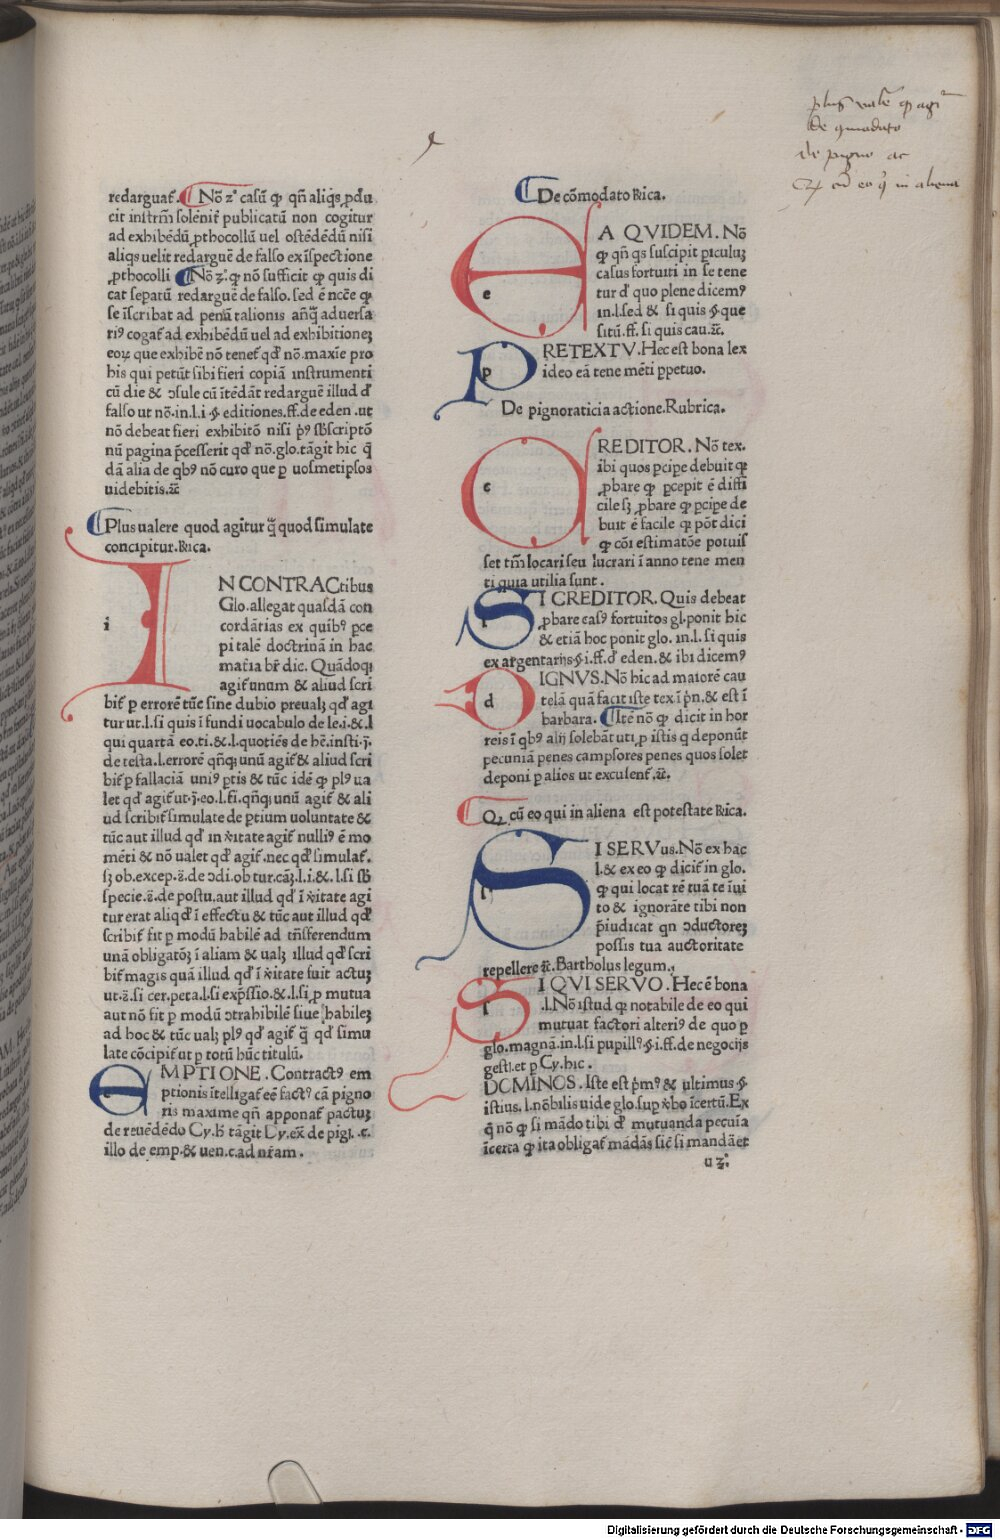 redarguat᷒. Nō zͦ casū ꝙ qñ aliqͥs ꝓdu
cit instr̄m solēnit᷒ publicatū non cogitur
ad exhibēdū ꝓthocollū uel ostēdēdū nisi
aliqͥs uelit redarguē de falso ex īspectione
ꝓthocolli Nō zͦ. ꝙ nō sufficit ꝙ quis di
cat separtū redarguē de falso. sed ē ncc̄e ꝙ
se īscribat ad penū talionis añq̄ aduersa
riꝰ cogat᷒ ad exhibēdū uel ad exhibitionēꝫ
eoꝝ que exhibē nō tenet᷒ qđ nō. maxīe pro
bis qui petūt sibi fieri copiā instrumenti
cū die & ↄsule cū ītēdāt redarguē illud đ
falso ut nō. in. l. i. §. editiones. ff. de eden. ut
nō debeat fieri exhibitō nisi pͥꝰ sb̄scriptō
nū pagina p̄cesserit qđ nō. glo. tāgit hic q̄
dā alia de qbꝰ nō curo que ꝑ uosmetipsos
uidebitis. ⁊c̄
Plus ualere quod agitur q̄ȝ quod simulate
concipitur. Rica.
i
IN CONTRACtibus
Glo. allegat quasdā con
cordātias ex quibꝰ ꝑce
pi talē doctrinā in hac
mat᷒ia br̄ dic. Quādoqꝫ
agit᷒ unum & aliud scri
bit᷒ ꝑ errorē tūc sine dubio preualꝫ qđ agi
tur ut. l. si quis ī fundi uocabulo de le. i. & . l
qui quartā eo. ti. & . l. quotiēs de hē. insti. ⁊.
de testa. l. errorē qñqꝫ unū agit᷒ & aliud scri
bit᷒ ꝑ fallaciā uniꝰ ꝑtis & tūc idē ꝙ plꝰ ua
let qđ agit᷒ ut. ⁊. eo. l. fi. qñqꝫ unū agit᷒ & ali
ud scribit᷒ simulate de ꝑtium uoluntate &
tūc aut illud qđ in ꝟitate agit᷒ nulliꝰ ē mo
mēti & nō ualet qđ agit᷒. nec qđ simulat᷒.
sꝫ ob. excep. ⁊̄. de ↄdi. ob tur. cāꝫ. l. i. & . l. si sb̄
specie. ⁊̄. de postu. aut illud qđ ī ꝟitate agi
tur erat aliqđ ī effectu & tūc aut illud qđ
scribit᷒ fit ꝑ modū habilē ad trāsferendum
unā obligatōꝫ ī aliam & ualꝫ illud qđ scri
bit᷒ magis quā illud qđ ī ꝟitate fuit actuꝫ
ut. ⁊̄. si cer. peta. l. si exp̄ssio. & . l. si ꝓ mutua
aut nō fit ꝑ modū ↄtrahibilē siue habileꝫ
ad hoc & tūc ualꝫ plꝰ qđ agit᷒ q̄ȝ qđ simu
late cōcipit᷒ ut ꝑ totū hūc titulū.
e
EMPTIONE. Contractꝰ em
ptionis ītelligat᷒ eē factꝰ cā pigno
ris maxime qñ apponat᷒ pactuꝫ
de reuēdēdo Cy. h̄ tāgit Cy. ex̄ de pigi. .c.
illo de emp. & uen. c. ad nr̄am.
De cōmodato Rica.
e
EA QVIDEM. Nō
ꝙ qñ qs suscipit ꝑiculuꝫ
casus fortuiti in se tene
tur đ quo plene dicemꝰ
in. l. sed & si quis §. que
situ. ff. si quis cau. ⁊c̄.
p
PRETEXTV. Hec est bona lex
ideo eā tene mēti ꝑpetuo.
De pignoraticia actione. Rubrica.
c
CREDITOR. Nō tex.
ibi quos ꝑcipe debuit ꝙ
ꝓbare ꝙ ꝑcepit ē diffi
cile sꝫ ꝓbare ꝙ ꝑcipe de
buit ē facile ꝙ pōt dici
ꝙ cōi estimatōe potuis
set tm̄ locari seu lucrari ī anno tene men
ti quia utilia sunt.
SI CREDITOR. Quis debeat
ꝓbare casꝰ fortuitos gl. ponit hic
& etiā hoc ponit glo. in. l. si quis
ex argentarijs §. i. ff. đ eden. & ibi dicemꝰ
d
DIGNVS. Nō hic ad maiorē cau
telā quā facit iste tex ī pn̄. & est ī
barbara. Itē nō ꝙ dicit in hor
reis ī qbꝰ alij solebāt uti, ꝓ istis q deponūt
pecuniā penes campsores penes quos solet
deponi ꝑ alios ut excusent᷒. ⁊c̄.
Qꝫ cū eo qui in aliena est potestate Rica.
SI SERVus. Nō ex hac
l. & ex eo ꝙ dicit᷒ in glo.
ꝙ qui locat rē tuā te īui
to & ignorāte tibi non
p̄iudicat qn ↄductoreꝫ
possis tua auctoritate
repellere ⁊c̄. Bartholus legum.
SI QVI SERVO. Hec ē bona
.l. Nō istud ꝙ notabile de eo qui
mutuat factori alteriꝰ de quo ꝑ
glo. magnā. in. l. si pupillꝰ. §. i. ff. de negocijs
gesti. et ꝑ Cy. hic.
DOMINOS. Iste est pͥmꝰ & ultimus §.
istius. l. nōbilis uide glo. sup ꝟbo īcertū. Ex
q̄ nō ꝙ si mādo tibi đ mutuanda pecuīa
īcerta ꝙ ita obligat᷒ mādās sic̄ si mandāet
u zͦ.
de pigno ac
in aliena
Digitalisierung gefördert durch die Deutsche Forschungsgemeinschaft - DFG